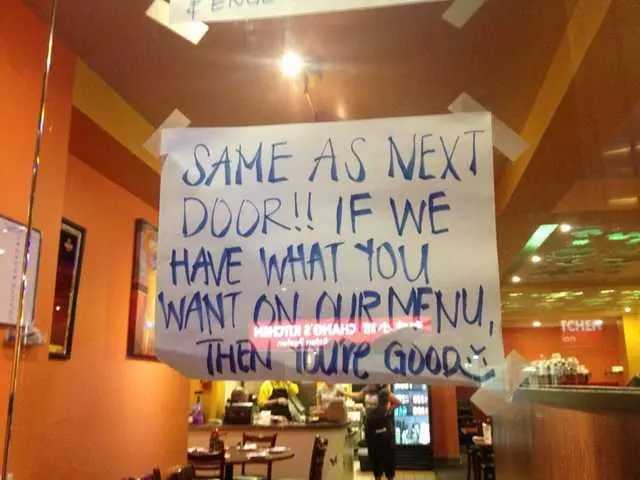 SAME AS NEXT
DOOR!! IF WE
HAVE WHAT YOU
WANT ON OUR MENU,
THEN YOU'RE GOOD
CHANG'S KITCHEN
TCHEN